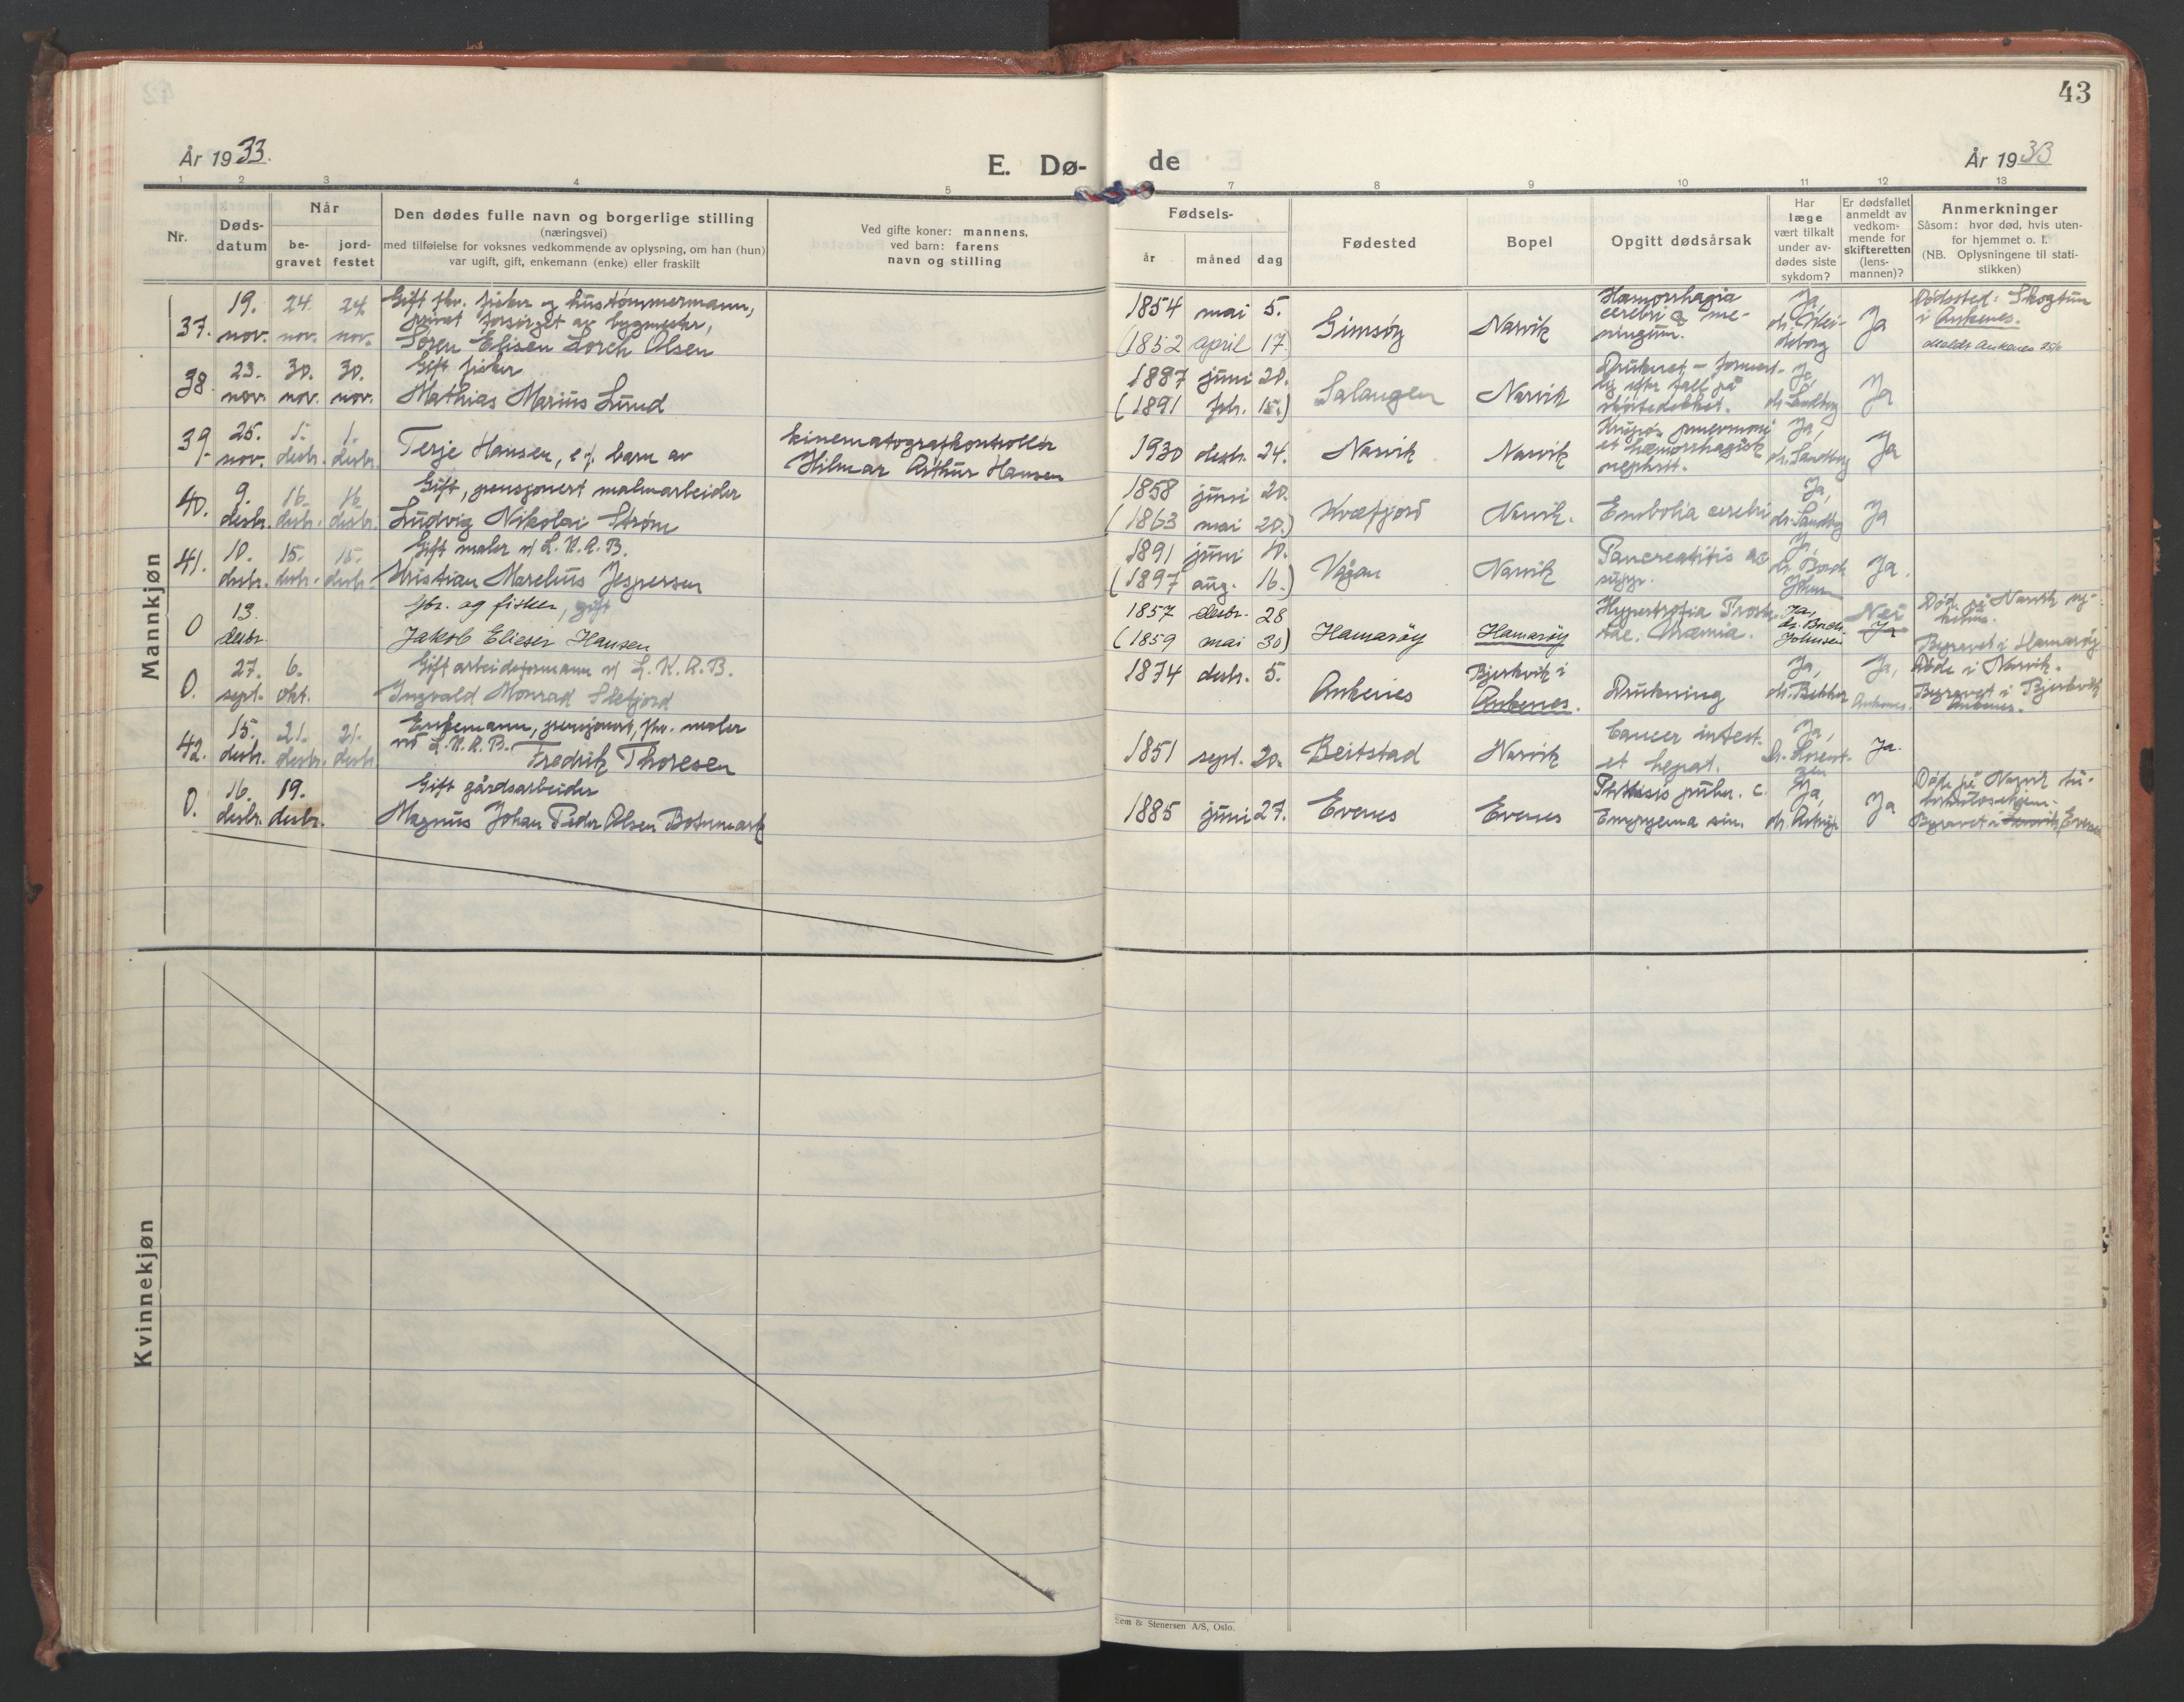 43
År 1933.
E. Dø-
de
År 1933
1 2 3 4 5
7 8 9 10 11 12 13
Nr.
Døds-
datum
Når
be-
gravet
jord-
festet
Den dødes fulle navn og borgerlige stilling
(næringsvei)
med tilføielse for voksnes vedkommende av oplysning, om han (hun)
var ugift, gift, enkemann (enke) eller fraskilt
Ved gifte koner: mannens,
ved barn: farens
navn og stilling
Fødsels-
år
måned
dag
Fødested
Bopel
Opgitt dødsårsak
Har
læge
vært tilkalt
under av-
dødes siste
sykdom?
Er dødsfallet
anmeldt av
vedkom-
mende for
skifteretten
(lens-
mannen)?
Anmerkninger
Såsom: hvor død, hvis uten-
for hjemmet o. l.
(NB. Oplysningene til stati-
stikken)
Mannkjøn
37.
19.
nov.
24.
nov.
24.
nov.
Gift fhv. fisker og hustømmermann,
privat forsørget av bygmester,
Søren Elisen Lorch Olsen
1854 mai 5.
(1852 april 17)
Gimsøy
Narvik
Hæmorrhagia
cerebri & me-
ningum.
Ja,
Ja
Dødssted: Skogtun
i Ankenes.
38.
23.
nov.
30.
nov.
30.
nov.
Gift fisker
Mathias Marius Lund
1887 juni 20.
(1891 febr. 15.)
Salangen
Narvik
Druknet - forment-
lig efter fall på
Ja,
dr. Sandberg
Ja
39.
25.
nov.
1.
desbr.
1.
desbr.
Terje Hansen, e.f. barn av
kinematografkontrollør
Hilmar Arthur Hansen
1930 desbr. 24.
Narvik
Narvik
Krupøs pneumoni
et hæmorrhagisk
nephrit.
Ja,
dr. Sandberg
Ja
40.
9.
desbr.
16.
desbr.
16.
desbr.
Gift, pensjonert malmarbeider
Ludvig Nikolai Strøm
1858 juni 20.
(1863 mai 20.)
Kvæfjord
Narvik.
Embolia cerebri
Ja,
dr. Sandberg
Ja
41.
10.
desbr.
15.
desbr.
15.
desbr.
Gift maler v/ L.K.A.B.
Kristian Marelius Jespersen
1891 juni 10.
(1897 aug. 16.)
Vågan
Narvik
Pancreatitis ac
supp.
Ja,
dr. Borch
Johnsen
Ja.
0
13
desbr.
gbr. og fisker, gift
Jakob Elieser Hansen
1857 desbr. 28
(1859 mai 30)
Hamarøy
Hamarøy
Hypertrofia Prosta-
tae. Uræmia.
Ja,
dr. Borch
Johnsen
Nei
Ja
Død på Narvik sy-
kehus.
Begravet i Hamarøy
0.
27.
sept.
6.
okt.
Gift arbeidsformann v/ L.K.A.B.
Ingvald Monrad Slefjord
1874 desbr. 5.
Ankenes
Bjerkvik i
Ankenes.
Drukning
Ja,
dr. Bekker
Ja,
Ankenes.
Døde i Narvik.
Begravet i Bjerkvik
Ankenes.
42.
15.
desbr.
21.
desbr.
21.
desbr.
Enkemann, pensjonert, fhv. maler
ved L.K.A.B. Fredrik Thoresen
1851 sept. 20.
Beitstad
Narvik
Cancer intest.
et hepat.
Ja,
Ja.
0.
16.
desbr.
19.
desbr.
Gift gårdsarbeider
Magnus Johan Peder Olsen Botnmark
1885 juni 27.
Evenes
Evenes
Phthisis pulm. c.
Empyema sin.
Ja,
Ja
Døde på Narvik tu-
berkulosehjem.
Begravet i Evenes
Kvinnekjøn
Sem & Stenersen A/S, Oslo.